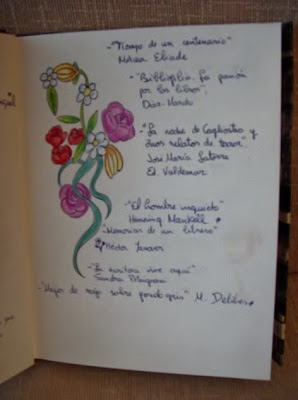 - "Tiempo de un centenario"
Mircea Eliade
- "Bibliofilia. La pasión
por los libros",
- "La noche de Cagliostro y
otros relatos de terror".
José María Latorre
Ed. Valdemar
- "El hombre inquieto"
Henning Mankell.
- Memorias de un librero"
Héctor Yánover
- "La escritora vive aquí"
Sandra Petrignani
- "Mujer de rojo sobre fondo gris" M. Delibes.